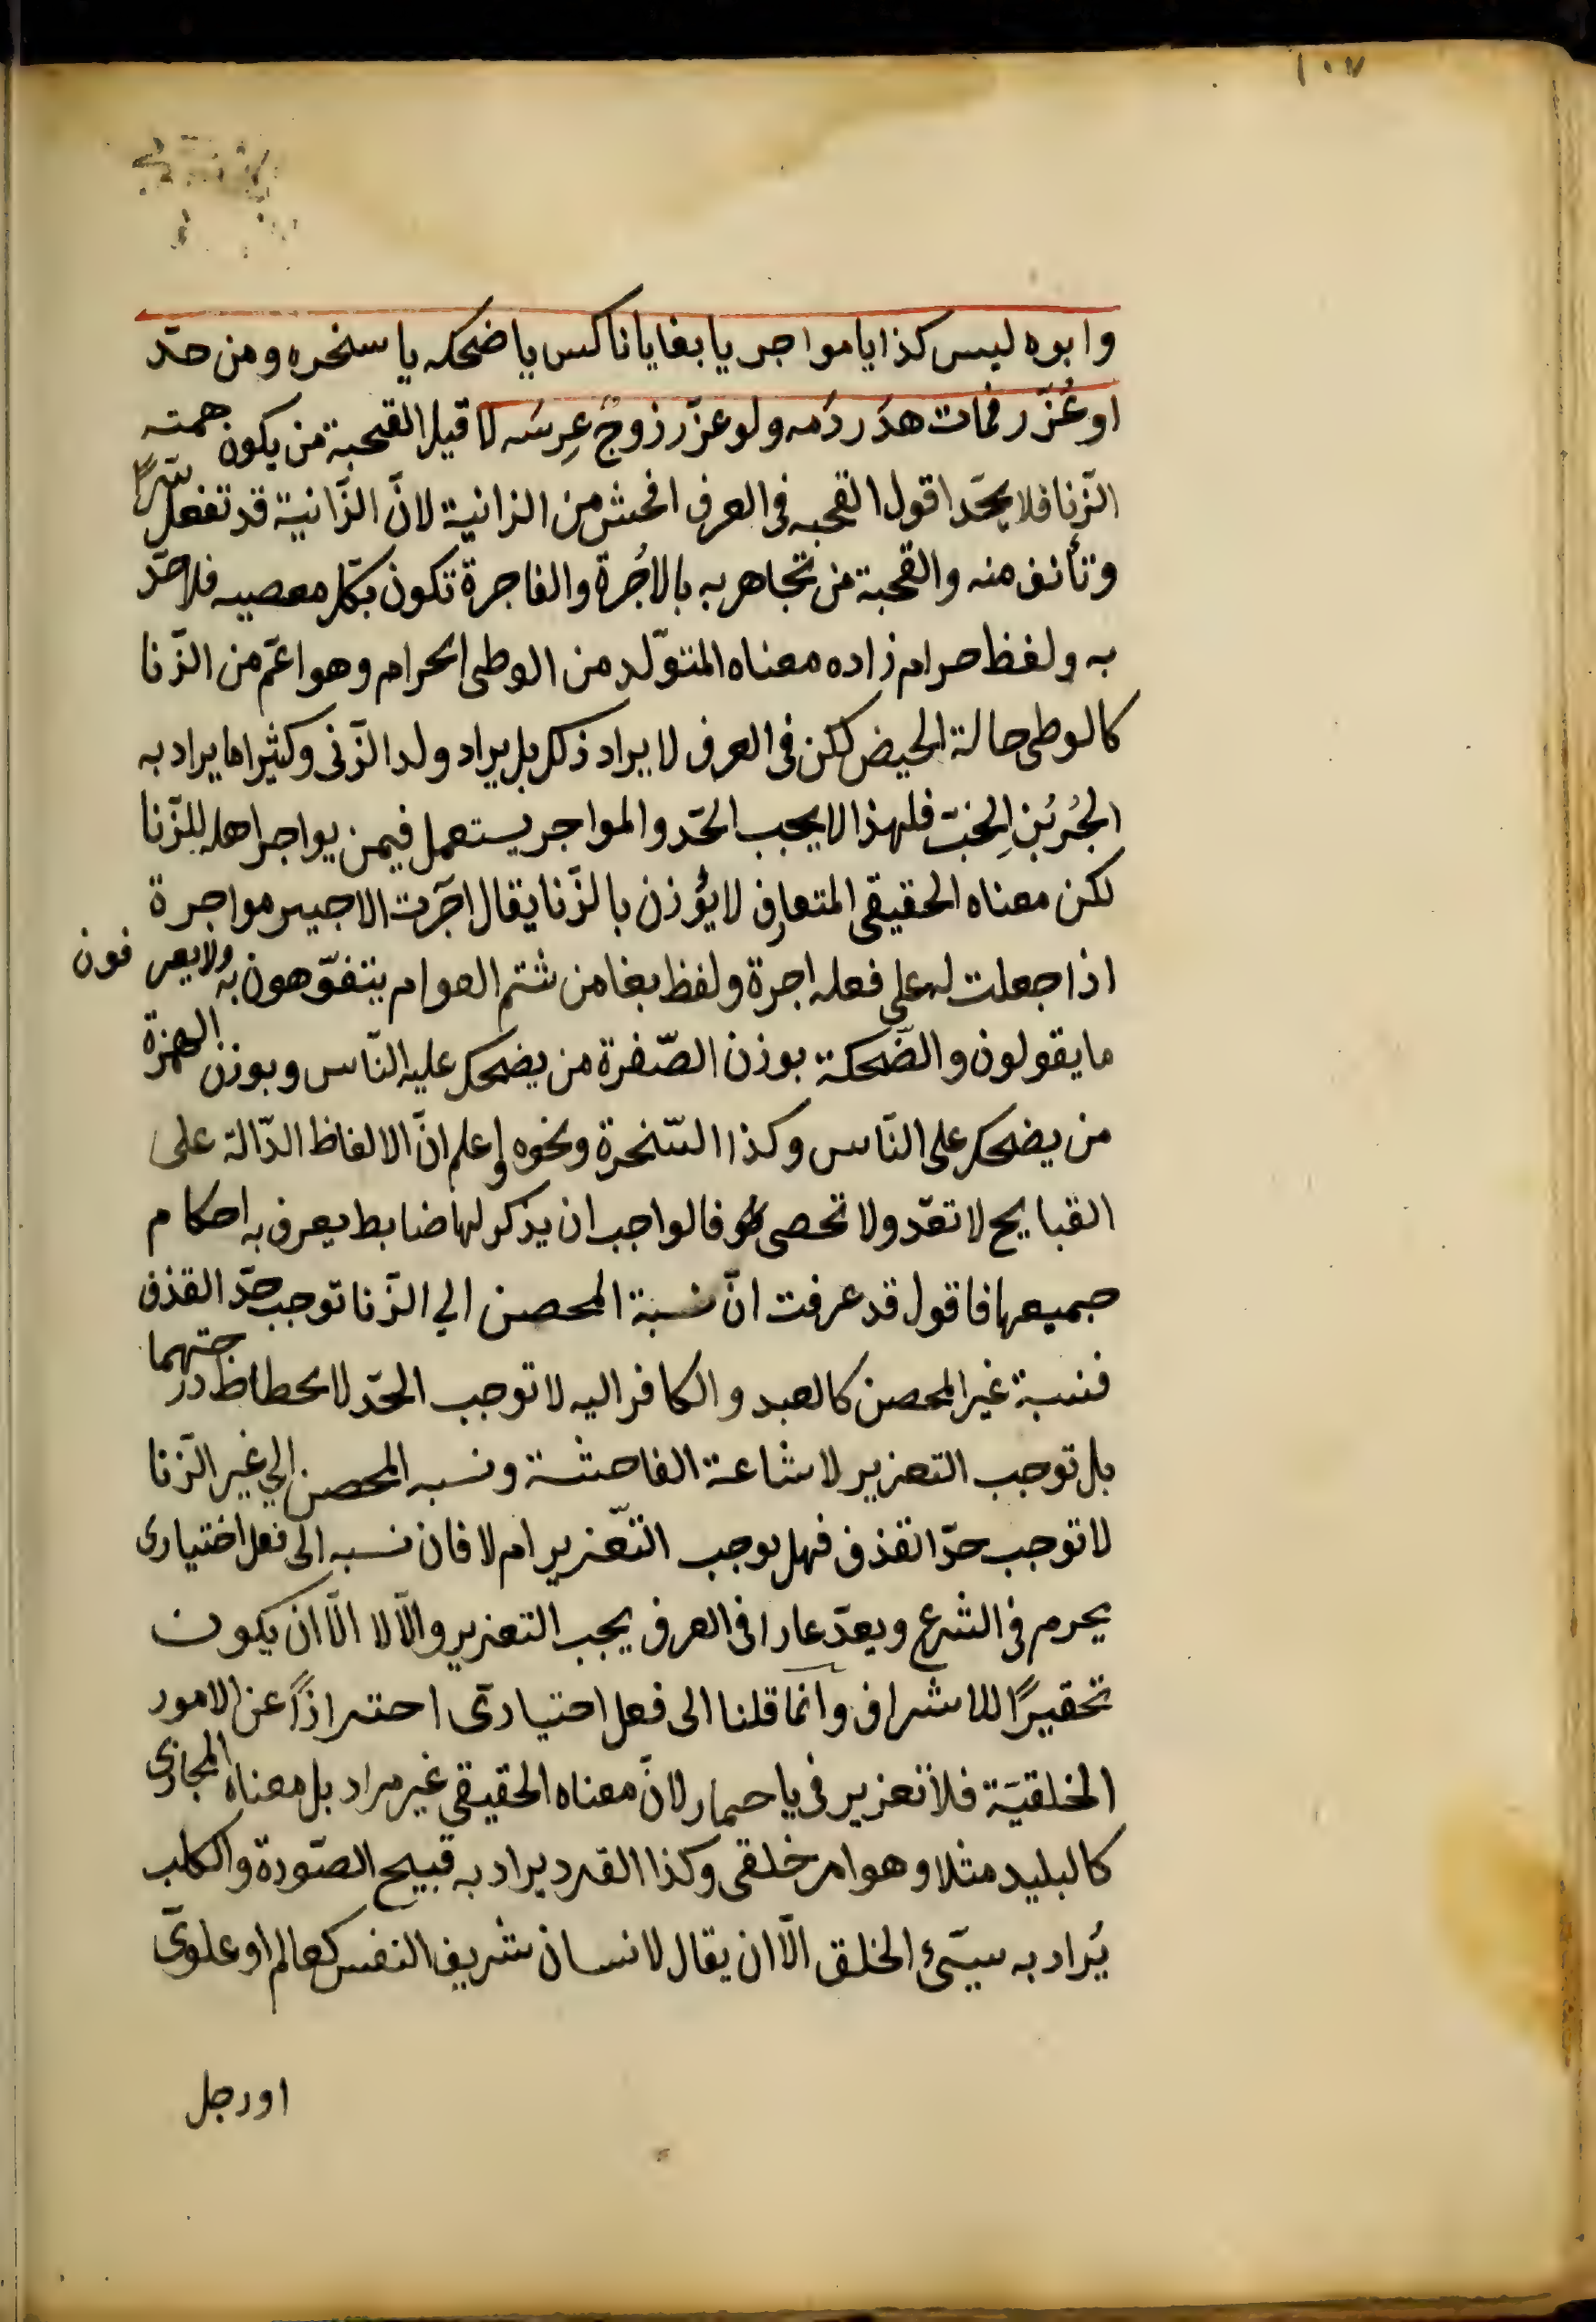 ١٠٧
وابوه ليس كذا يا مواجر يا بغا يا ناكس يا ضحكه يا سخره ومن حدّ
او عُزّر فمات هدَر دَمه ولو عزّر زوجٌ عِرسَه لا قيل القحبة من يكون همته
الزّنا فلا يحدّ اقول القحبه فى العرف افحش من الزانية لانّ الزّانية قد تفعل سّرًا
وتأنف منه والقحبة من تجاهر به بالاُجُرة والفاجرة تكون بكل معصيه فلا حدّ
به ولفظ حرام زاده معناه المتولّد من الوطى الحرام وهو اعمّ من الزّنا
كالوطى حالة الحيض لكن فى العرف لا يراد ذلك بل يراد ولد الزّنى وكثيرا ما يراد به
الجُربُز الخِبّ فلهذا لا يجب الحدّ والمواجر يستعمل فيمن يواجر اهله للزّنا
لكن معناه الحقيقى المتعارف لا يؤذن بالزّنا يقال آجرت الاجير مواجرة
اذا جعلت له على فعله اجرة ولفظ بغا من شتم العوام يتفوّهون به ولا يعرفون
ما يقولون والضّحكة بوزن الصّفرة من يضحك عليه النّاس وبوزن الهمزة
من يضحك على النّاس وكذا السّخرة ونحوه واعلم انّ الالفاظ الدّالة على
القبايح لا تعدّ ولا تحصى فالواجب ان يذكر لها ضابط يعرف به احكام
جميعها فاقول قد عرفت انّ نسبة المحصن الي الزّنا توجب حدّ القذف
فنسبة غير المحصن كالعبد والكافر اليه لا توجب الحدّ لانحطاط درجتهما
بل توجب التعزير لاشاعة الفاحشة ونسبه المحصن الي غير الزّنا
لا توجب حدّ القذف فهل يوجب التّعزير ام لا فان نسبه الى فعل اختيارى
يحرم فى الشرع ويعدّ عارا فى العرف يجب التعزير والّا لا الّا ان يكون
تحقيرًا للاشراف وانّما قلنا الى فعل اختيارى احترازًا عن الامور
الخلقيّة فلا تعزير فى يا حمار لانّ معناه الحقيقي غير مراد بل معناه المجازى
كالبليد مثلا وهو امر خلقى وكذا القرد يراد به قبيح الصّورة والكلب
يُراد به سيّئ الخلق الّا ان يقال لانسان شريف النفس كعالم او علوىّ
او رجل